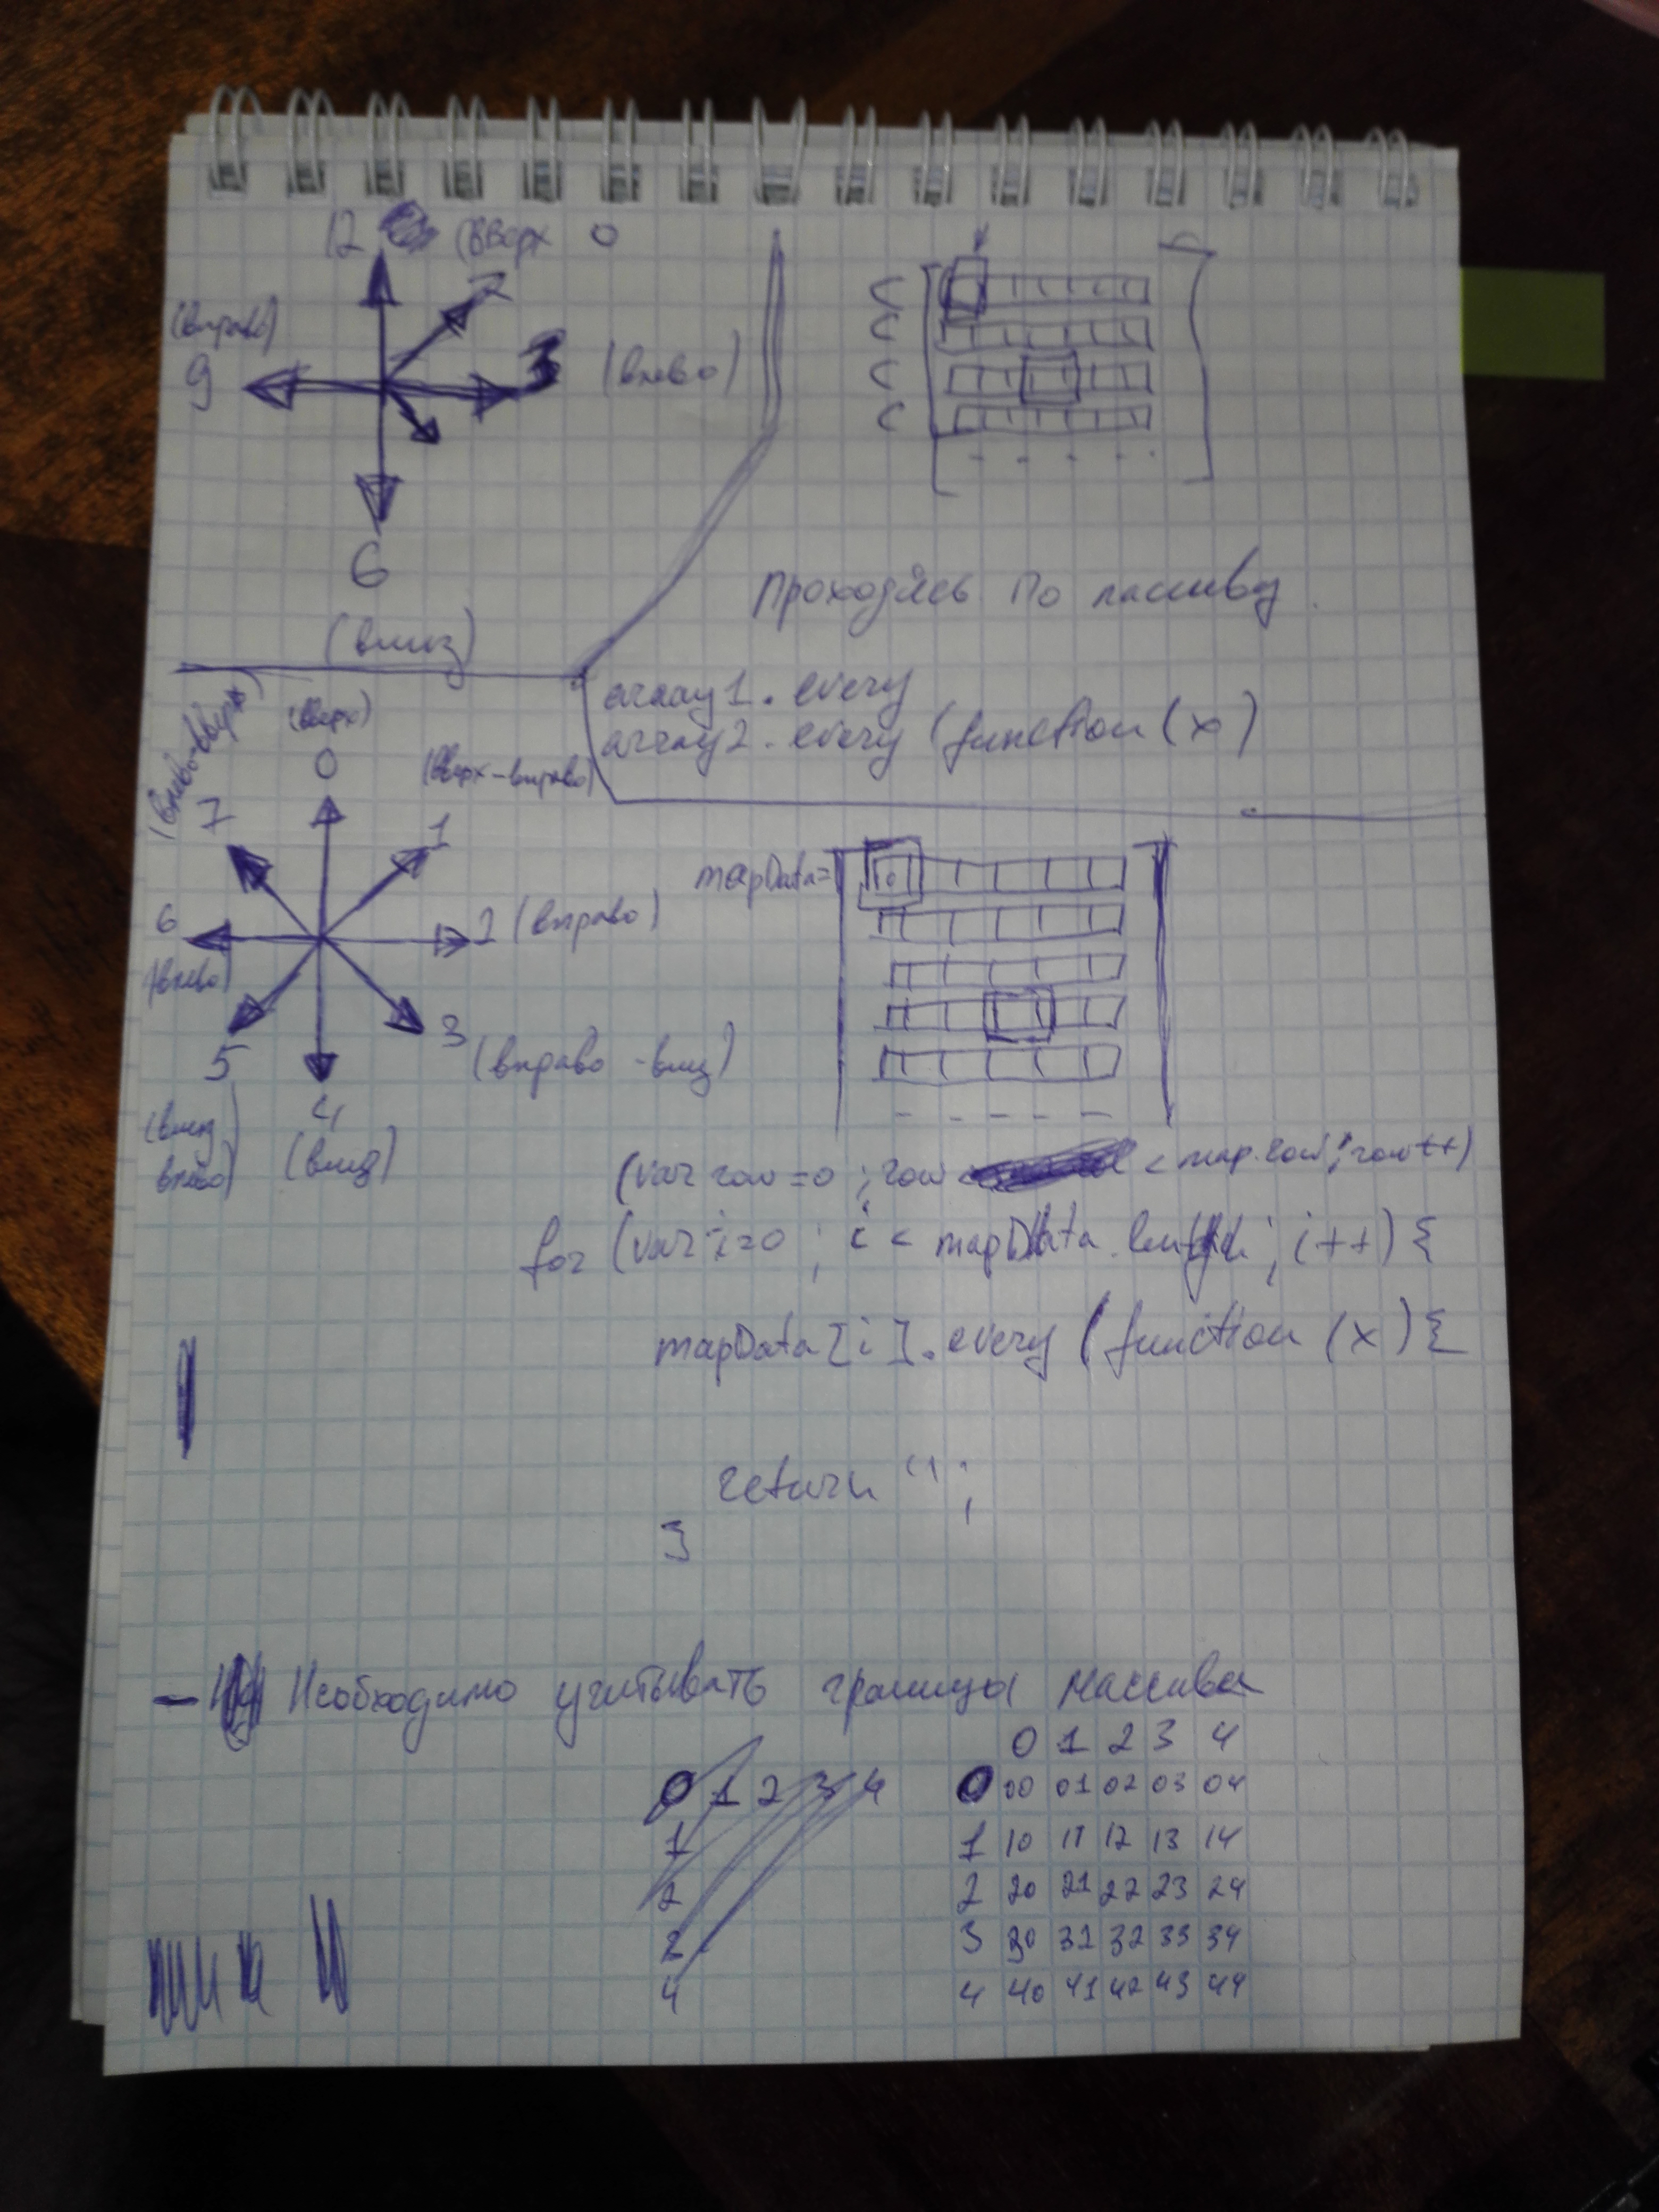 12 (вверх 0
2
(вправо)
9
3 (влево)
6
(вниз)
Проходясь по массиву
array1.every
array2.every (function (x)
(влево-вверх)
(вверх)
0
(вверх-вправо)
7
1
6
(влево)
2 (вправо)
5
3 (вправо-вниз)
(вниз
влево)
4
(вниз)
mapData=
0
(var row=0; row < map.row; row++)
for (var i=0; i < mapData.length; i++) {
mapData[i].every (function (x) {
return '';
}
- Необходимо учитывать границы массива
0 1 2 3 4
0 1 2 3 4
1
2
3
4
0 00 01 02 03 04
1 10 11 12 13 14
2 20 21 22 23 24
3 30 31 32 33 34
4 40 41 42 43 44